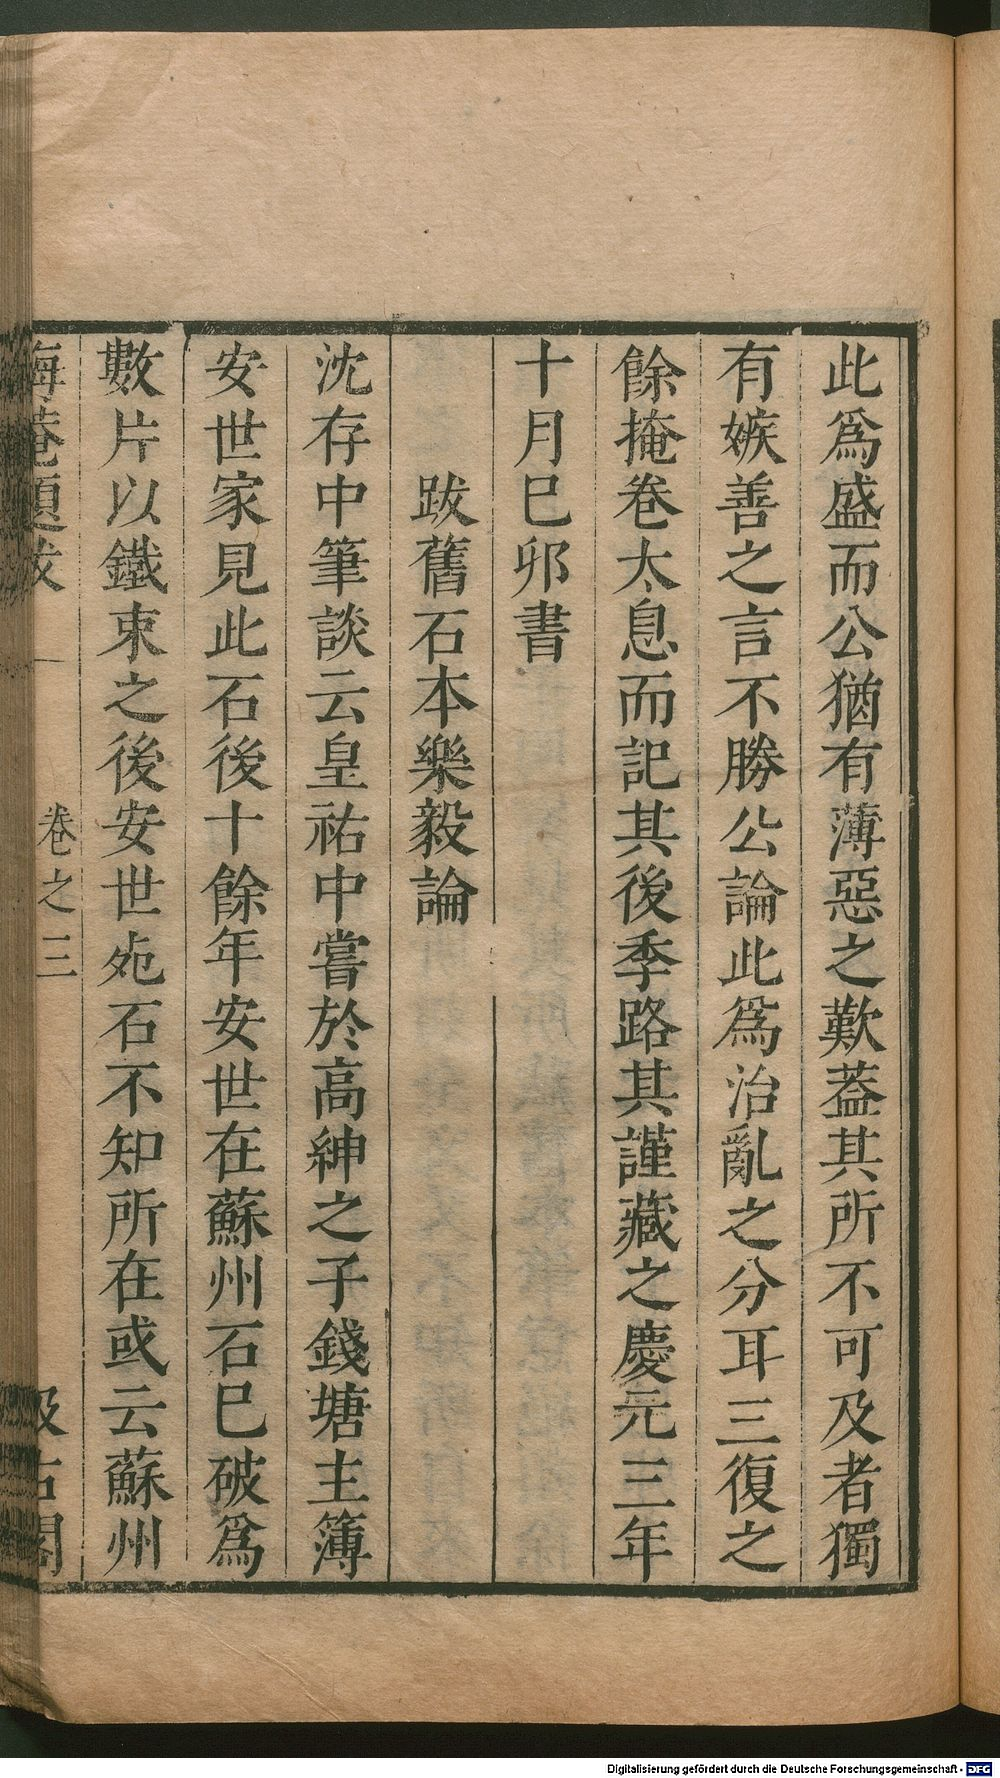 此爲盛而公猶有薄惡之歎蓋其所不可及者獨
有嫉善之言不勝公論此爲治亂之分耳三復之
餘掩卷太息而記其後季路其謹藏之慶元三年
十月巳卯書
跋舊石本樂毅論
沈存中筆談云皇祐中嘗於高紳之子錢塘主簿
安世家見此石後十餘年安世在蘇州石巳破爲
數片以鐵束之後安世死石不知所在或云蘇州
海菴題跋 卷之三 汲古閣
Digitalisierung gefördert durch die Deutsche Forschungsgemeinschaft - DFG